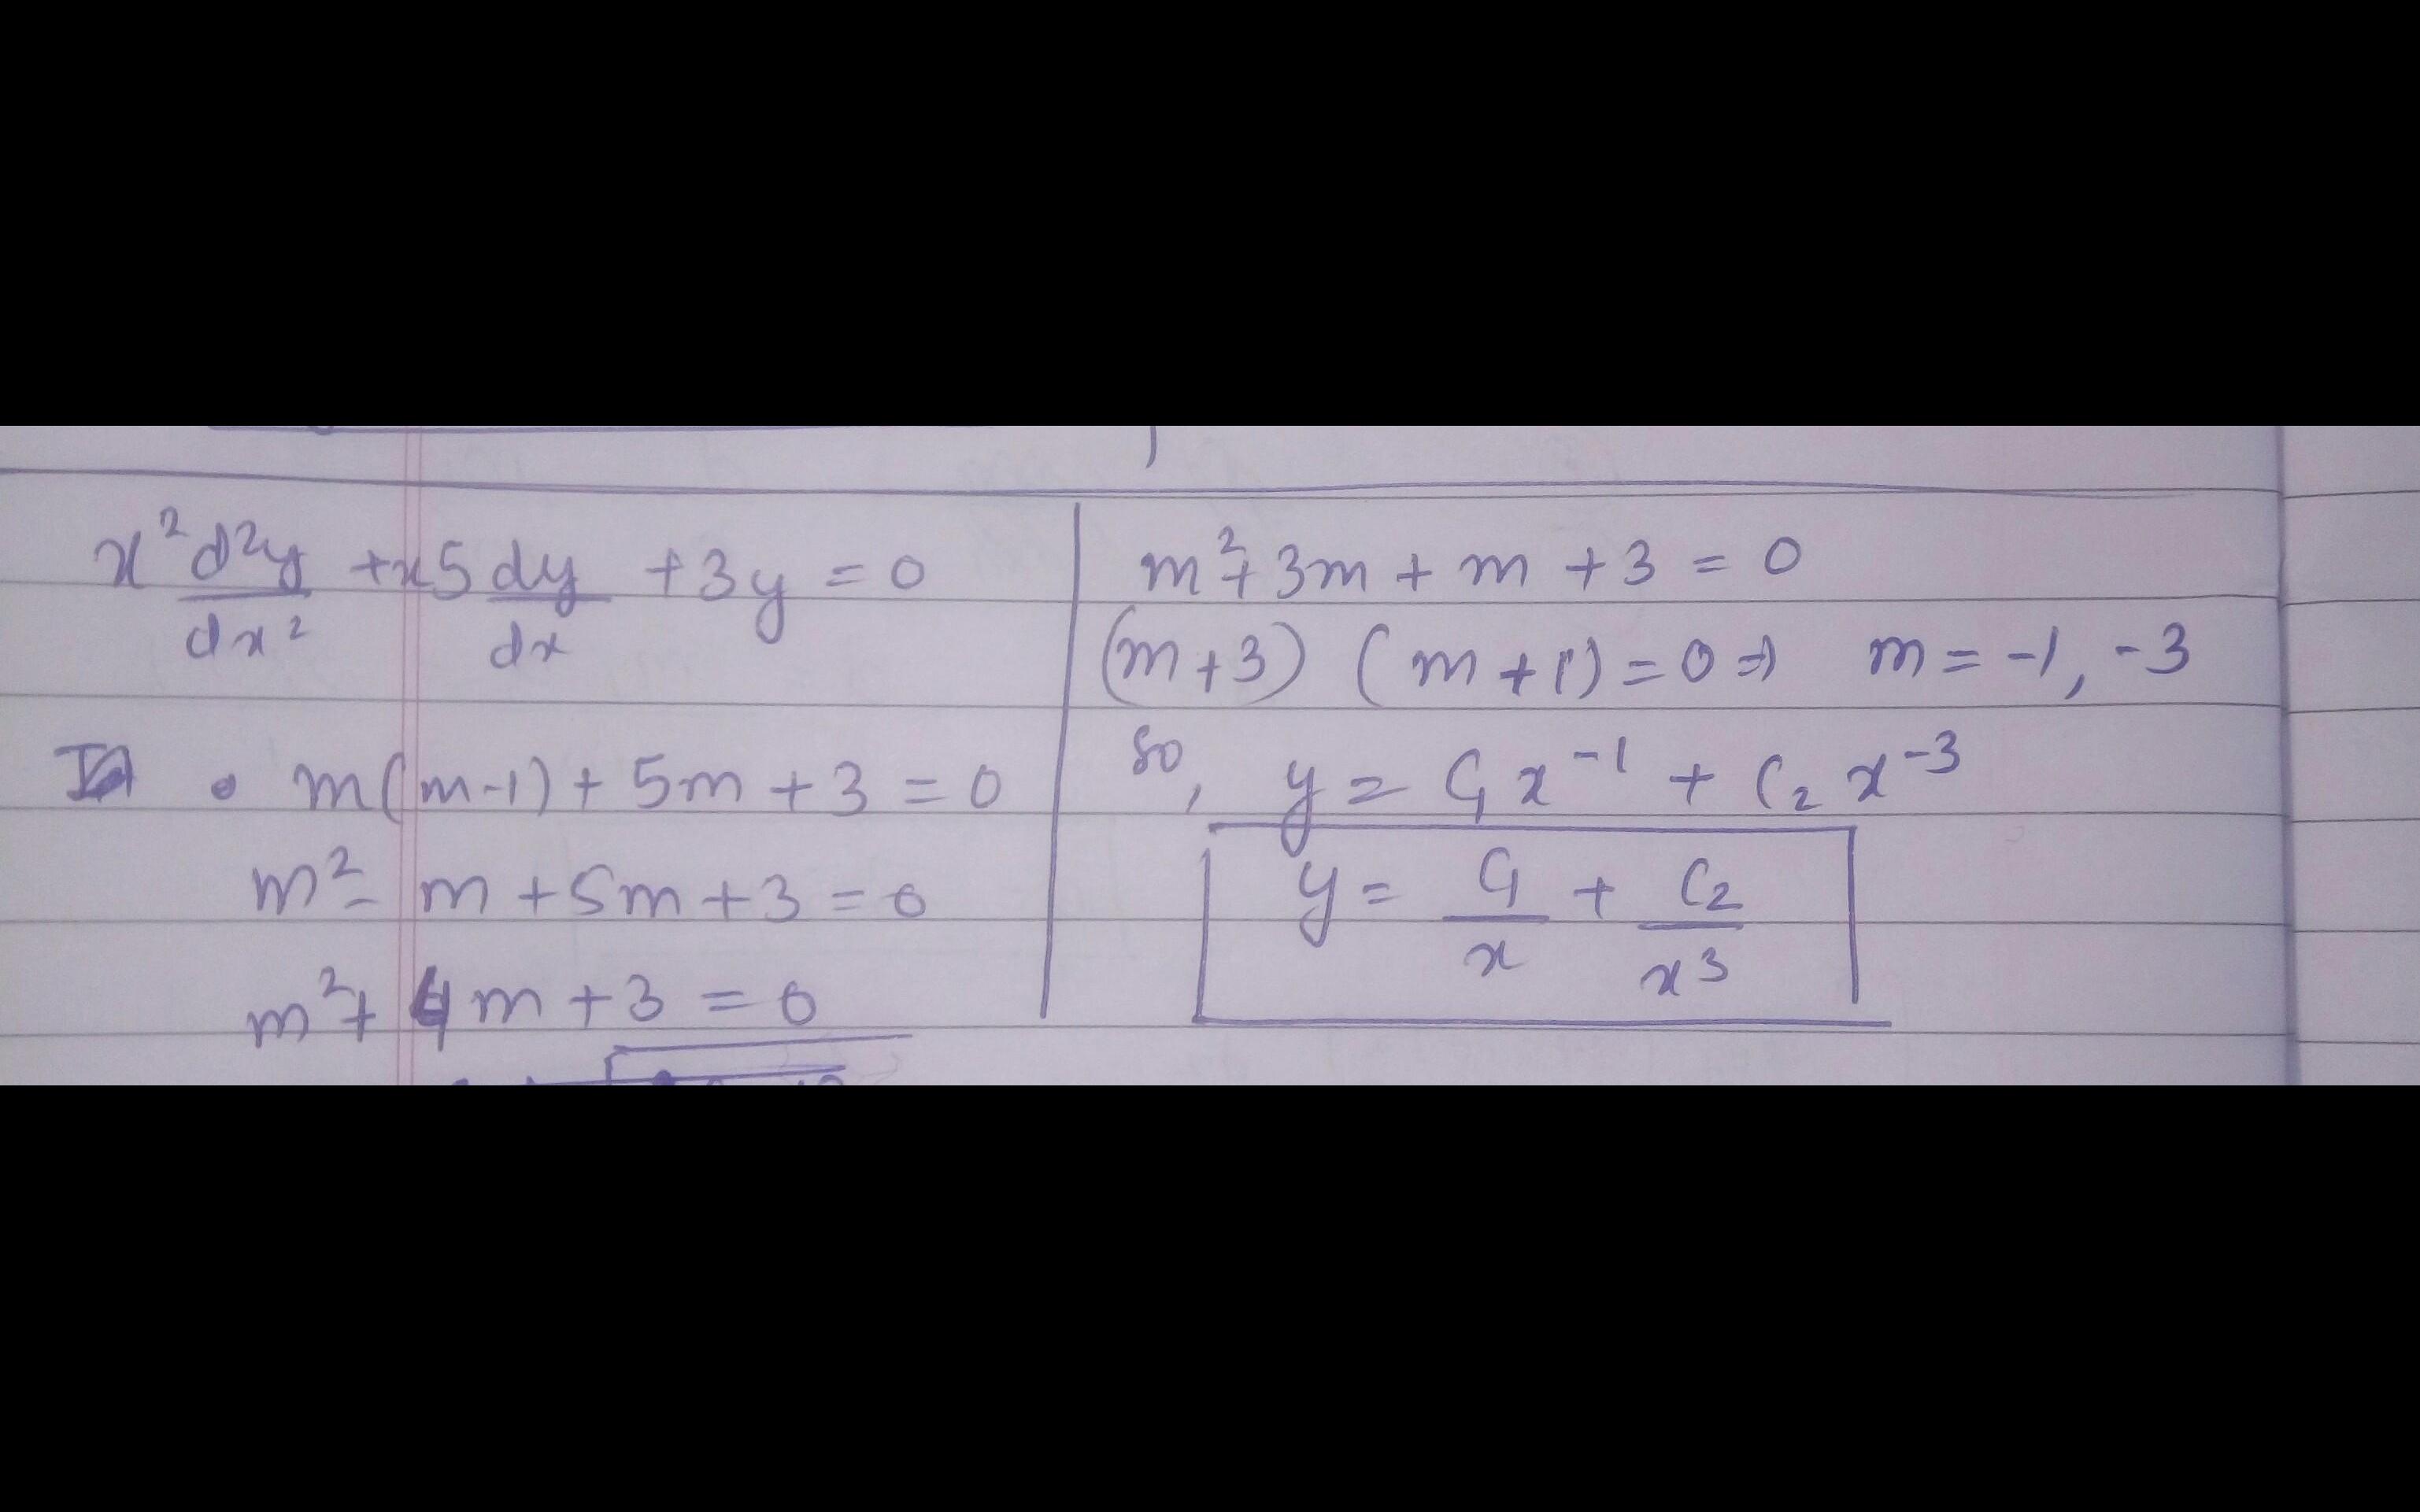 x² d²y/dx² + x5 dy/dx + 3y = 0
m(m-1) + 5m + 3 = 0
m² - m + 5m + 3 = 0
m² + 4m + 3 = 0
m² + 3m + m + 3 = 0
(m+3) (m+1) = 0 ⇒ m = -1, -3
so, y = C₁x⁻¹ + C₂x⁻³
y = C₁/x + C₂/x³